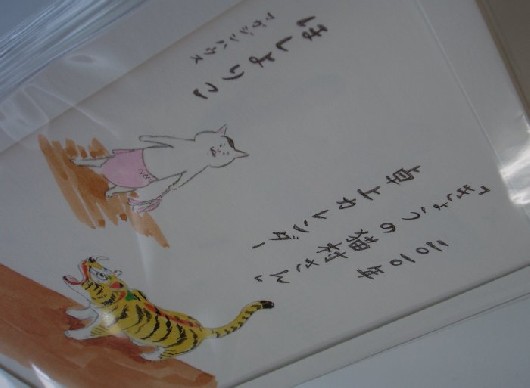 二〇一〇年
「きょうの猫村さん」
卓上カレンダー
ほしよりこ
マガジンハウス